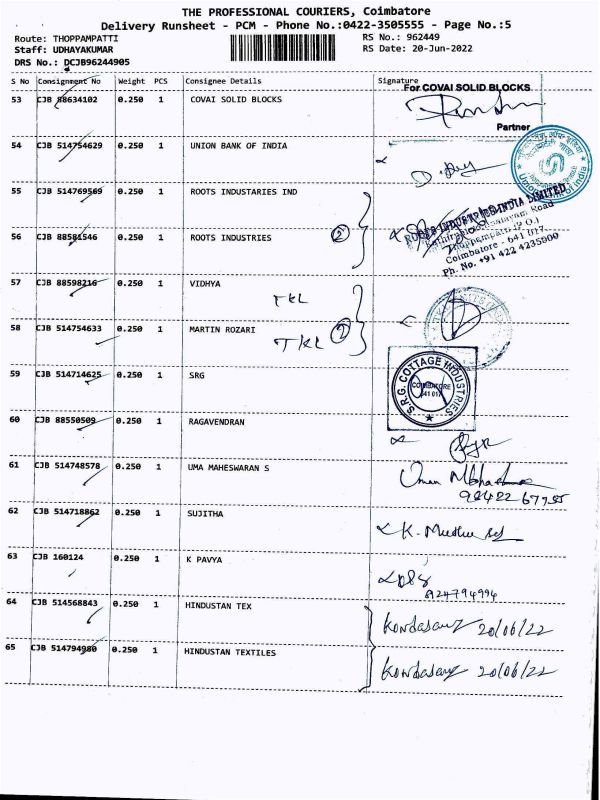 THE PROFESSIONAL COURIERS, Coimbatore
Delivery Runsheet - PCM - Phone No.:0422-3505555 - Page No.:5
Route: THOPPAMPATTI RS No.: 962449
Staff: UDHAYAKUMAR RS Date: 20-Jun-2022
DRS No.: DCJB96244905
S No Consignment No Weight PCS Consignee Details Signature
For COVAI SOLID BLOCKS
53 CJB 88634102 0.250 1 COVAI SOLID BLOCKS
Partner
54 CJB 514754629 0.250 1 UNION BANK OF INDIA
55 CJB 514769569 0.250 1 ROOTS INDUSTARIES IND
ROOTS INDUSTRIES INDIA LIMITED
56 CJB 88581546 0.250 1 ROOTS INDUSTRIES 2
Thoppampatti (P.O.)
Coimbatore - 641 017.
Ph. No. +91 422 4235900
57 CJB 88598216 0.250 1 VIDHYA
TKL
58 CJB 514754633 0.250 1 MARTIN ROZARI
TKL
59 CJB 514714625 0.250 1 SRG
S.R.G. COTTAGE INDUSTRIES
COIMBATORE
641 017
60 CJB 88550509 0.250 1 RAGAVENDRAN
61 CJB 514748578 0.250 1 UMA MAHESWARAN S
62 CJB 514718862 0.250 1 SUJITHA
63 CJB 160124 0.250 1 K PAVYA
64 CJB 514568843 0.250 1 HINDUSTAN TEX 20/06/22
65 CJB 514794980 0.250 1 HINDUSTAN TEXTILES 20/06/22